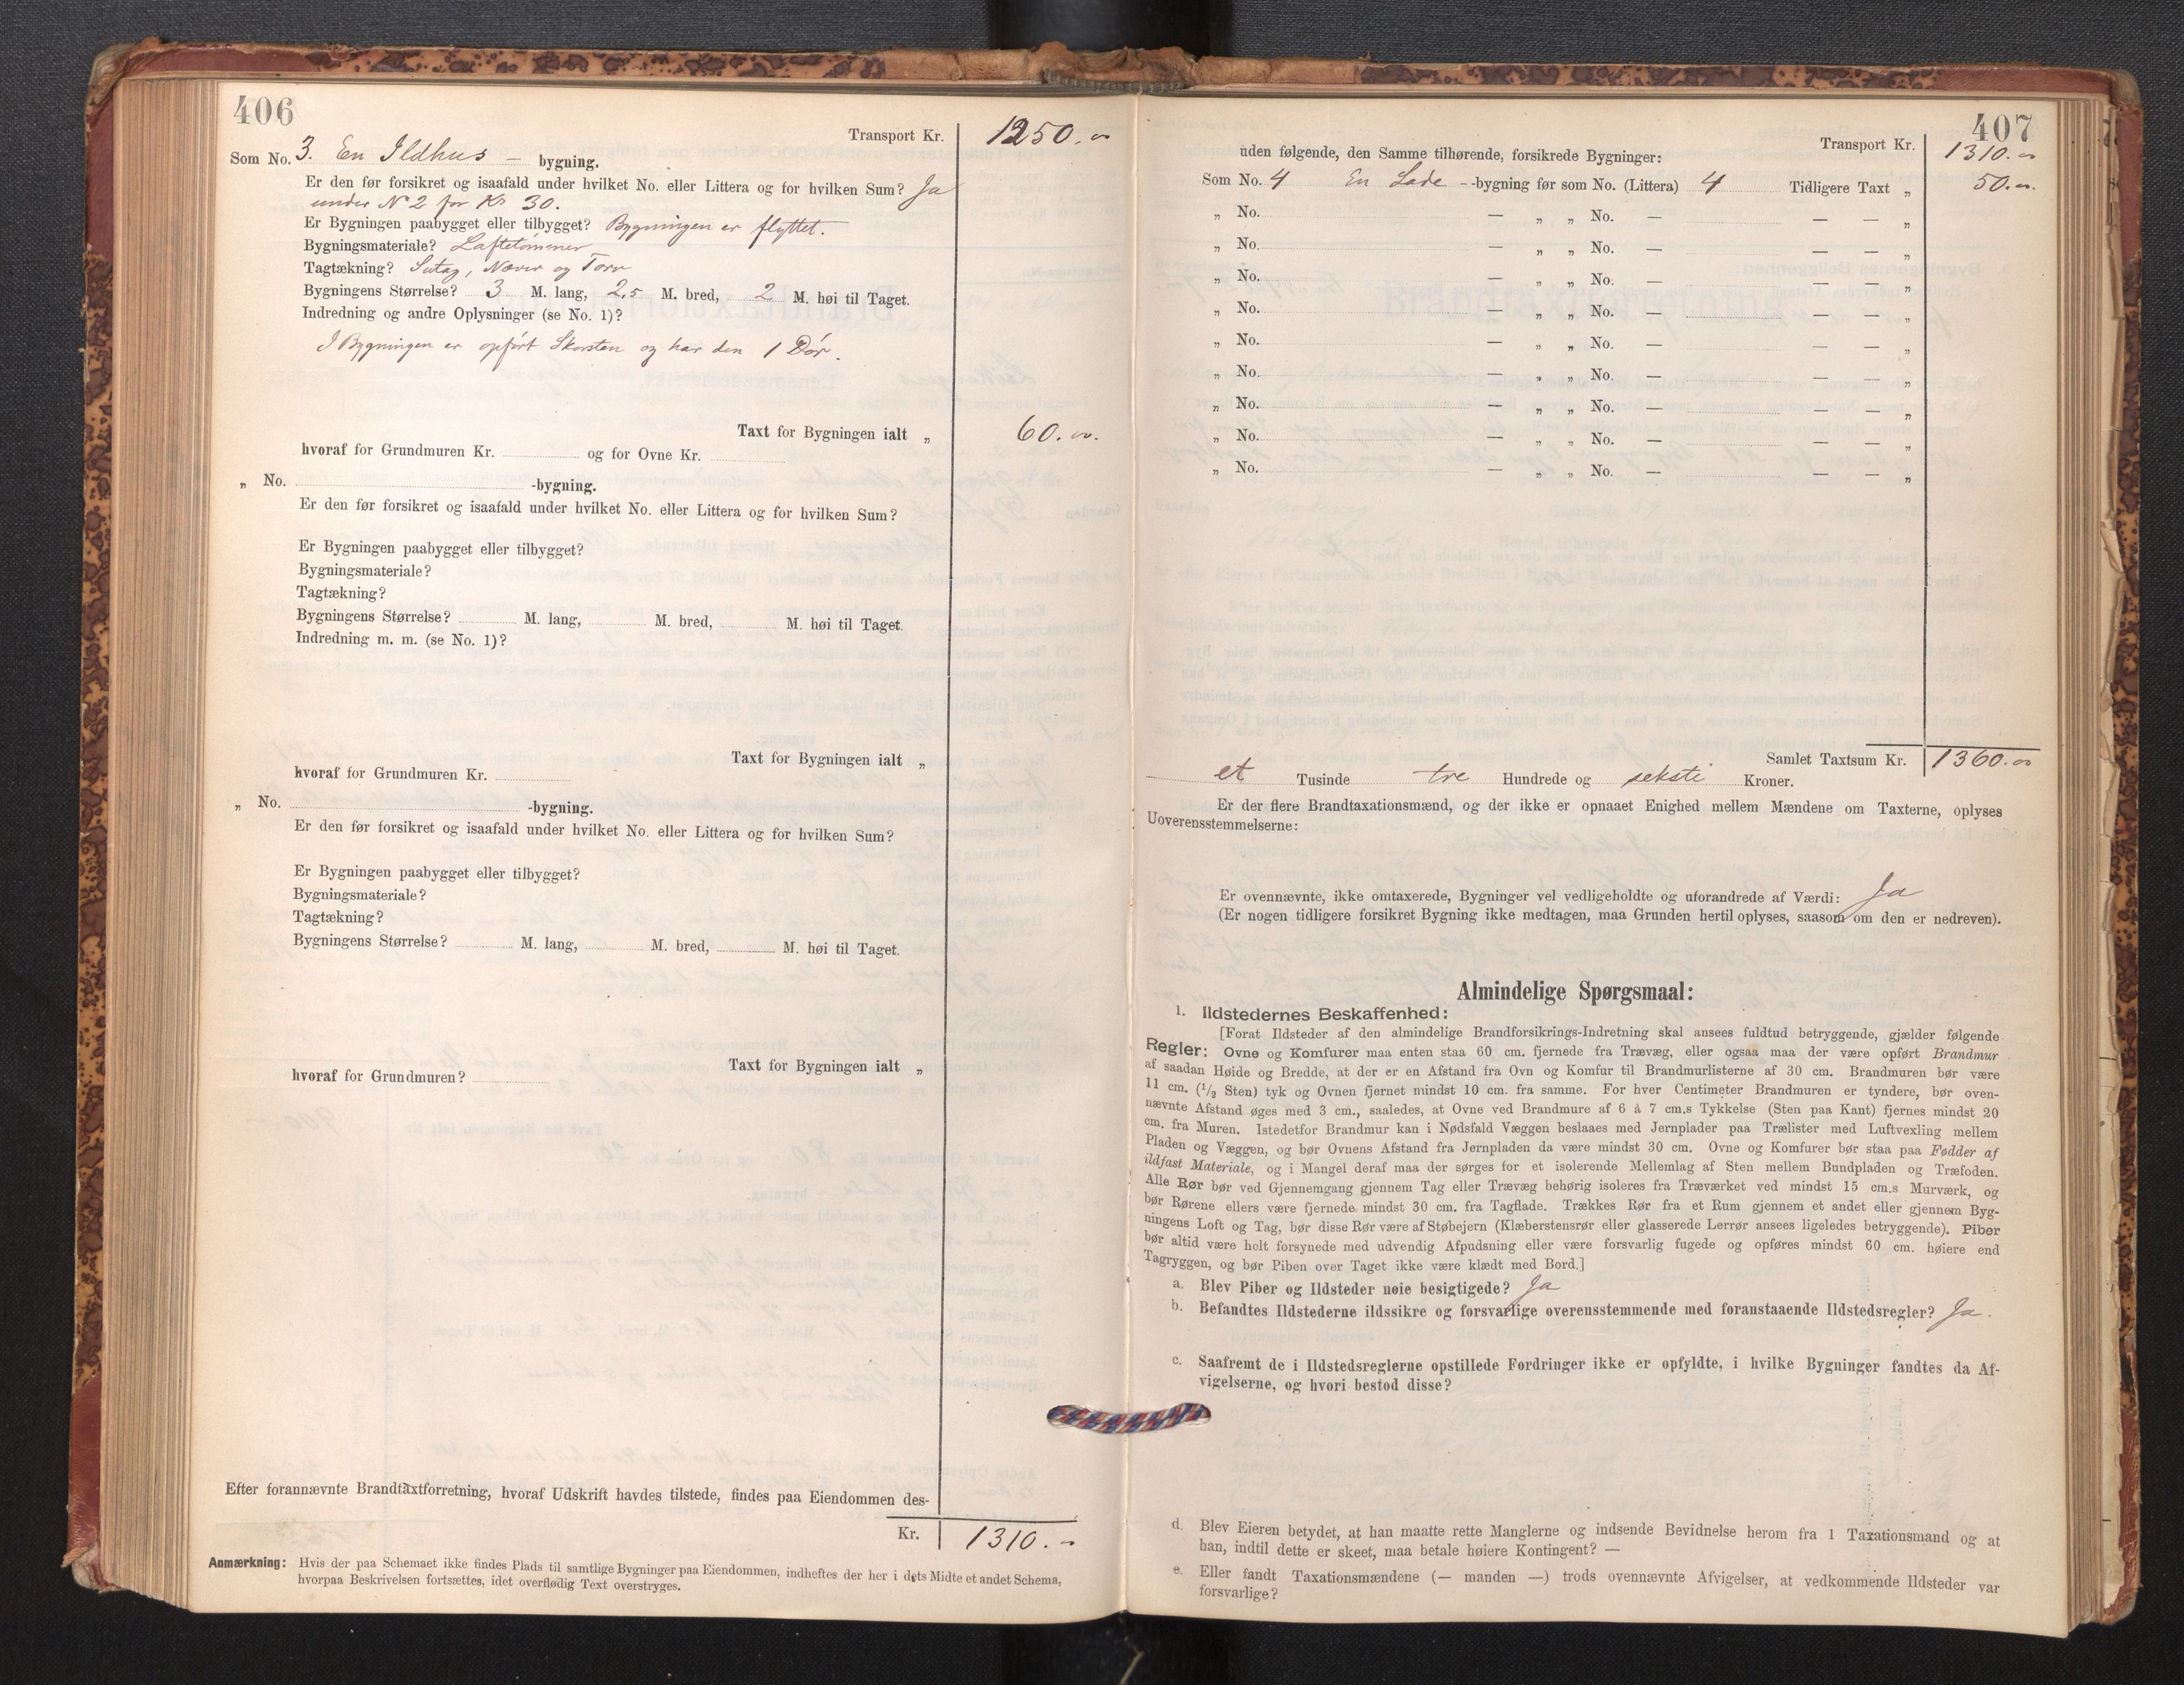 406
Transport Kr. 1250.00
Som No. 3. En Ildhus – bygning.
Er den før forsikret og isaafald under hvilket No. eller Littera og for hvilken Sum? Ja
under No 2 for Kr 30.
Er Bygningen paabygget eller tilbygget? Bygningen er flyttet.
Bygningsmateriale? Laftetømmer
Tagtækning? Sutag, Næver og Torv
Bygningens Størrelse? 3 M. lang, 2,5 M. bred, 2 M. høi til Taget.
Indredning og andre Oplysninger (se No. 1)?
I Bygningen er opført Skorsten og har den 1 Dør.
Taxt for Bygningen ialt „ 60.00.
hvoraf for Grundmuren Kr. og for Ovne Kr.
„ No. -bygning.
Er den før forsikret og isaafald under hvilket No. eller Littera og for hvilken Sum?
Er Bygningen paabygget eller tilbygget?
Bygningsmateriale?
Tagtækning?
Bygningens Størrelse? M. lang, M. bred, M. høi til Taget.
Indredning m. m. (se No. 1)?
Taxt for Bygningen ialt „
hvoraf for Grundmuren Kr.
„ No. -bygning.
Er den før forsikret og isaafald under hvilket No. eller Littera og for hvilken Sum?
Er Bygningen paabygget eller tilbygget?
Bygningsmateriale?
Tagtækning?
Bygningens Størrelse? M. lang, M. bred, M. høi til Taget.
Taxt for Bygningen ialt „
hvoraf for Grundmuren?
Efter forannævnte Brandtaxtforretning, hvoraf Udskrift havdes tilstede, findes paa Eiendommen des-
Kr. 1310.–
Anmærkning: Hvis der paa Schemaet ikke findes Plads til samtlige Bygninger paa Eiendommen, indheftes der her i dets Midte et andet Schema,
hvorpaa Beskrivelsen fortsættes, idet overflødig Text overstryges.
407
Transport Kr. 1310.00
uden følgende, den Samme tilhørende, forsikrede Bygninger:
Som No. 4 En Lade - -bygning før som No. (Littera) 4 Tidligere Taxt „ 50.00.
„ No. — „ „ No. — — — „
„ No. — „ „ No. — — — „
„ No. — „ „ No. — — — „
„ No. — „ „ No. — — — „
„ No. — „ „ No. — — — „
„ No. — „ „ No. — — — „
„ No. — „ „ No. — — — „
„ No. — „ „ No. — — — „
„ No. — „ „ No. — — — „
Samlet Taxtsum Kr. 1360.00
et Tusinde tre Hundrede og seksti Kroner.
Er der flere Brandtaxationsmænd, og der ikke er opnaaet Enighed mellem Mændene om Taxterne, oplyses
Uoverensstemmelserne:
Er ovennævnte, ikke omtaxerede, Bygninger vel vedligeholdte og uforandrede af Værdi: Ja
(Er nogen tidligere forsikret Bygning ikke medtagen, maa Grunden hertil oplyses, saasom om den er nedreven).
Almindelige Spørgsmaal:
1. Ildstedernes Beskaffenhed:
[Forat Ildsteder af den almindelige Brandforsikrings-Indretning skal ansees fuldtud betryggende, gjælder følgende
Regler: Ovne og Komfurer maa enten staa 60 cm. fjernede fra Trævæg, eller ogsaa maa der være opført Brandmur
af saadan Høide og Bredde, at der er en Afstand fra Ovn og Komfur til Brandmurlisterne af 30 cm. Brandmuren bør være
11 cm. (1/2 Sten) tyk og Ovnen fjernet mindst 10 cm. fra samme. For hver Centimeter Brandmuren er tyndere, bør oven-
nævnte Afstand øges med 3 cm., saaledes, at Ovne ved Brandmure af 6 à 7 cm.s Tykkelse (Sten paa Kant) fjernes mindst 20
cm. fra Muren. Istedetfor Brandmur kan i Nødsfald Væggen beslaaes med Jernplader paa Trælister med Luftvexling mellem
Pladen og Væggen, og bør Ovnens Afstand fra Jernpladen da være mindst 30 cm. Ovne og Komfurer bør staa paa Fødder af
ildfast Materiale, og i Mangel deraf maa der sørges for et isolerende Mellemlag af Sten mellem Bundpladen og Træfoden.
Alle Rør bør ved Gjennemgang gjennem Tag eller Trævæg behørig isoleres fra Træværket ved mindst 15 cm.s Murværk, og
bør Rørene ellers være fjernede mindst 30 cm. fra Tagflade. Trækkes Rør fra et Rum gjennem et andet eller gjennem Byg-
ningens Loft og Tag, bør disse Rør være af Støbejern (Klæberstensrør eller glasserede Lerrør ansees ligeledes betryggende). Piber
bør altid være helt forsynede med udvendig Afpudsning eller være forsvarlig fugede og opføres mindst 60 cm. høiere end
Tagryggen, og bør Piben over Taget ikke være klædt med Bord.]
a. Blev Piber og Ildsteder nøie besigtigede? Ja
b. Befandtes Ildstederne ildssikre og forsvarlige overensstemmende med foranstaaende Ildstedsregler? Ja.
c. Saafremt de i Ildstedsreglerne opstillede Fordringer ikke er opfyldte, i hvilke Bygninger fandtes da Af-
vigelserne, og hvori bestod disse?
d. Blev Eieren betydet, at han maatte rette Manglerne og indsende Bevidnelse herom fra 1 Taxationsmand og at
han, indtil dette er skeet, maa betale høiere Kontingent? —
e. Eller fandt Taxationsmændene (— manden —) trods ovennævnte Afvigelser, at vedkommende Ildsteder var
forsvarlige?